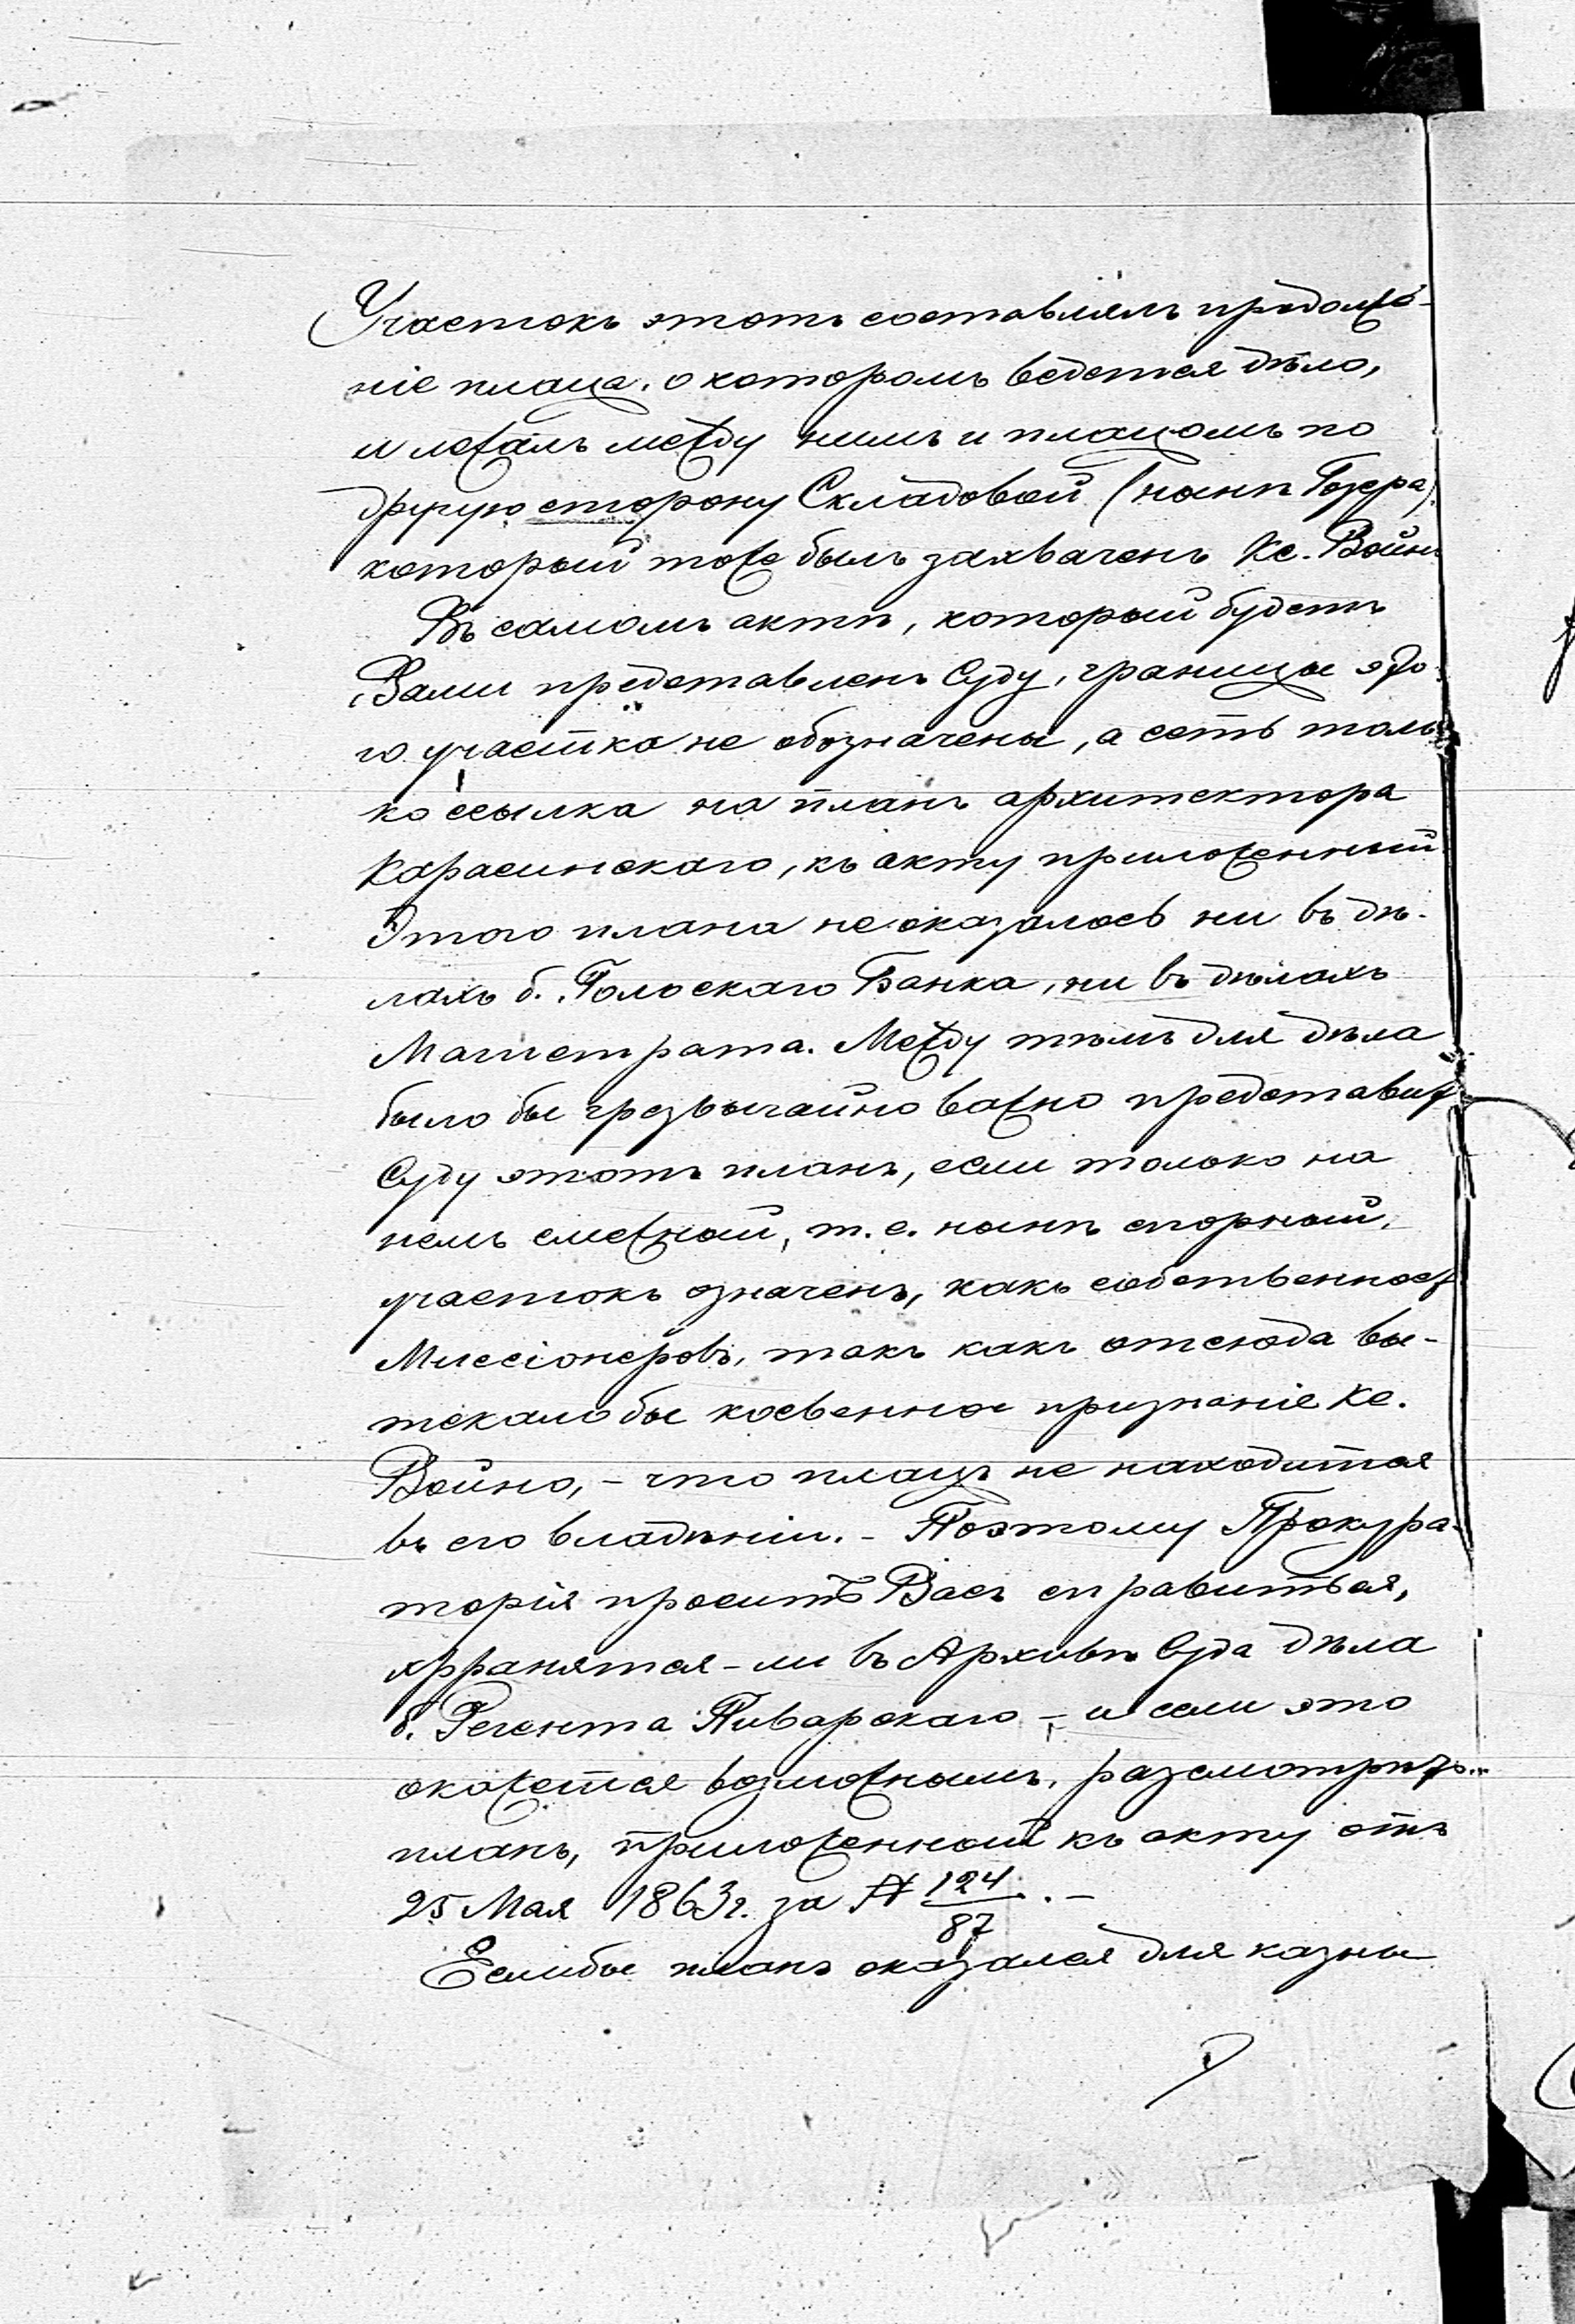 Участокъ этотъ составлялъ продолже-
ніе плаца, о которомъ ведется дѣло,
и лежалъ между нимъ и плацомъ по
другую сторону Складовой (нынѣ Гозера),
который тоже былъ захваченъ Кс. Войно
Въ самомъ актѣ, который будетъ
Вами представленъ Суду, границы это-
го участка не обозначены, а есть толь-
ко ссылка на планъ архитектора
Карасинскаго, къ акту приложенный.
Этого плана не оказалось ни въ дѣ-
лахъ б. Польскаго Банка, ни въ дѣлахъ
Магистрата. Между тѣмъ для дѣла
было бы чрезвычайно важно представить
Суду этотъ планъ, если только на
немъ смежный, т. е. нынѣ спорный,
участокъ означенъ, какъ собственность
Миссіонеровъ, такъ какъ отсюда вы-
текало бы косвенное признаніе Кс.
Войно, - что плацъ не находится
въ его владѣніи. - Поэтому Прокура-
торія проситъ Васъ справиться,
хранятся-ли въ Архивѣ Суда дѣла
б. Регента Пиварскаго - и если это
окажется возможнымъ, разсмотрѣть
планъ, приложенный къ акту отъ
25 Мая 1863 г. за № 124/87. -
Если бы планъ оказался для казны